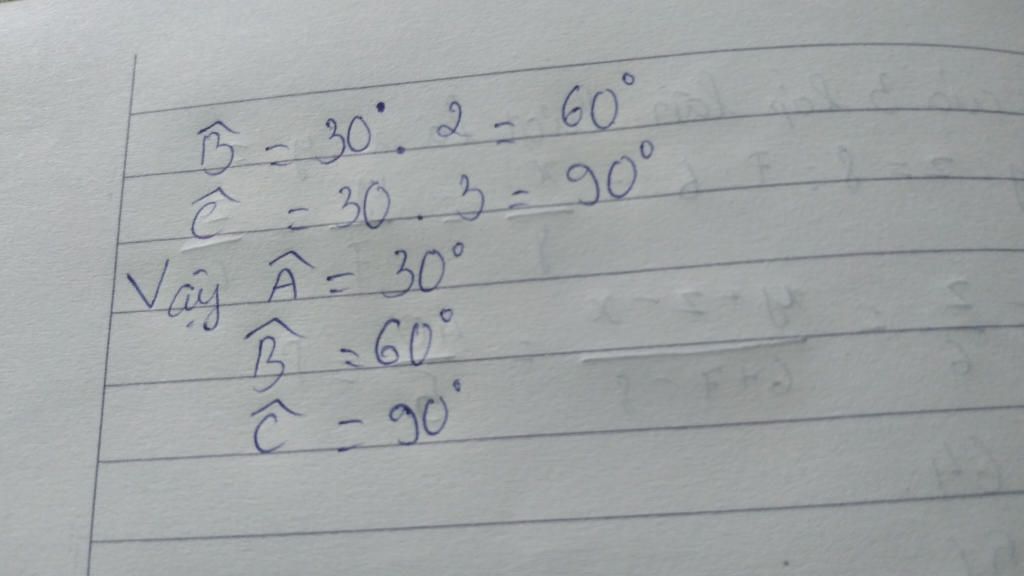 B̂ = 30°. 2 = 60°
Ĉ = 30 . 3 = 90°
Vậy Â = 30°
B̂ = 60°
Ĉ = 90°